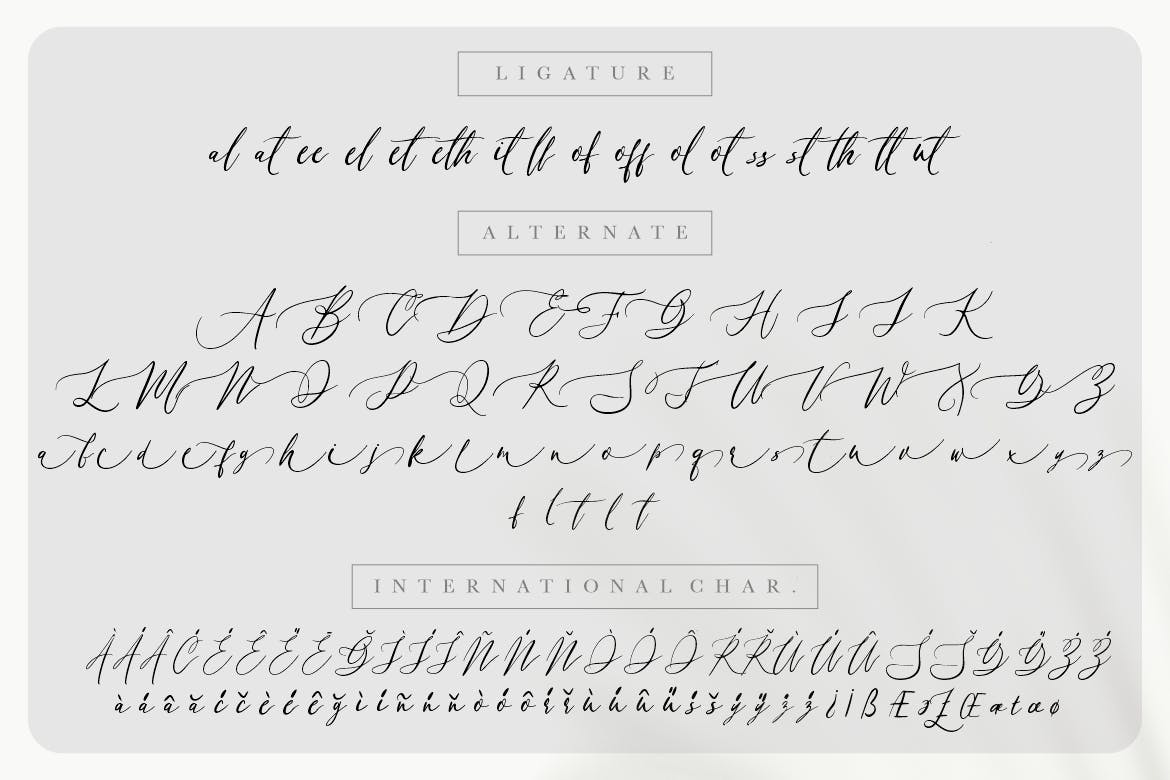 LIGATURE
al at ee el et eth it ff of off ol ot ss st th tt ut
ALTERNATE
A B C D E F G H I J K
L M N O P Q R S T U V W X Y Z
a b c d e f g h i j k l m n o p q r s t u v w x y z
f l t l t
INTERNATIONAL CHAR.
À Á Â Ć É Ê Ë È Ğ Ì Í Î Ñ Ń Ň Ò Ó Ô Ŕ Ř Ù Ú Û Ś Š Ý Ÿ Ź Ż
à á â ă ć č è é ê ğ ì í ñ ń ň ò ó ô ŕ ř ù ú û ü ś š ý ÿ ź ż ¿ ¡ ß Æ Œ æ œ ø